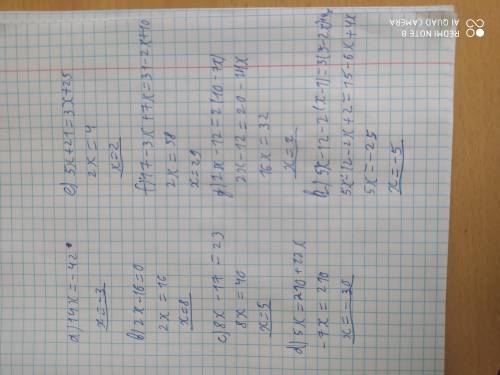 a) 14x=-42
x=-3
b) 2x-16=0
2x=16
x=8
c) 8x-17=23
8x=40
x=5
d) 5x=210+12x
-7x=210
x=-30
e) 5x+21=3x+25
2x=4
x=2
f) 17-3x+7x=31-2x+10
2x=58
x=29
g) 2x-12=2(10-7x)
2x-12=20-14x
16x=32
x=2
h) 5x-12-2(x-1)=3(5-2x)+4x
5x-12-2x+2=15-6x+4x
5x=-25
x=-5
REDMI NOTE 8
AI QUAD CAMERA